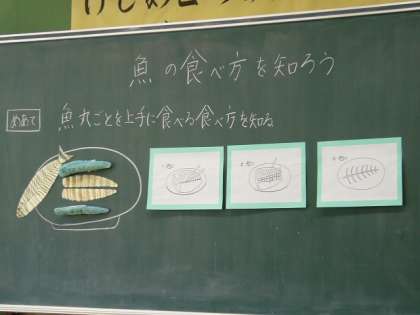 魚の食べ方を知ろう
めあて
魚丸ごとを上手に食べる食べ方を知る